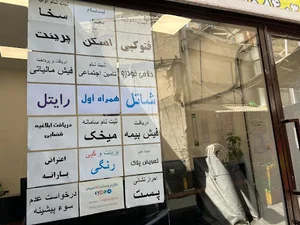 ثبت نام
سخا
اسکن
فتوکپی
پرینت
ثبت نام
تأمین اجتماعی
خلافی خودرو
دریافت و پرداخت
فیش مالیاتی
شاتل
همراه اول
رایتل
دریافت
فیش بیمه
ثبت نام سامانه
میخک
دریافت ابلاغیه
قضایی
تعویض پلاک
پرینت و کپی
رنگی
اعتراض
یارانه
احراز نشانی
پست
درخواست عدم
سوء پیشینه